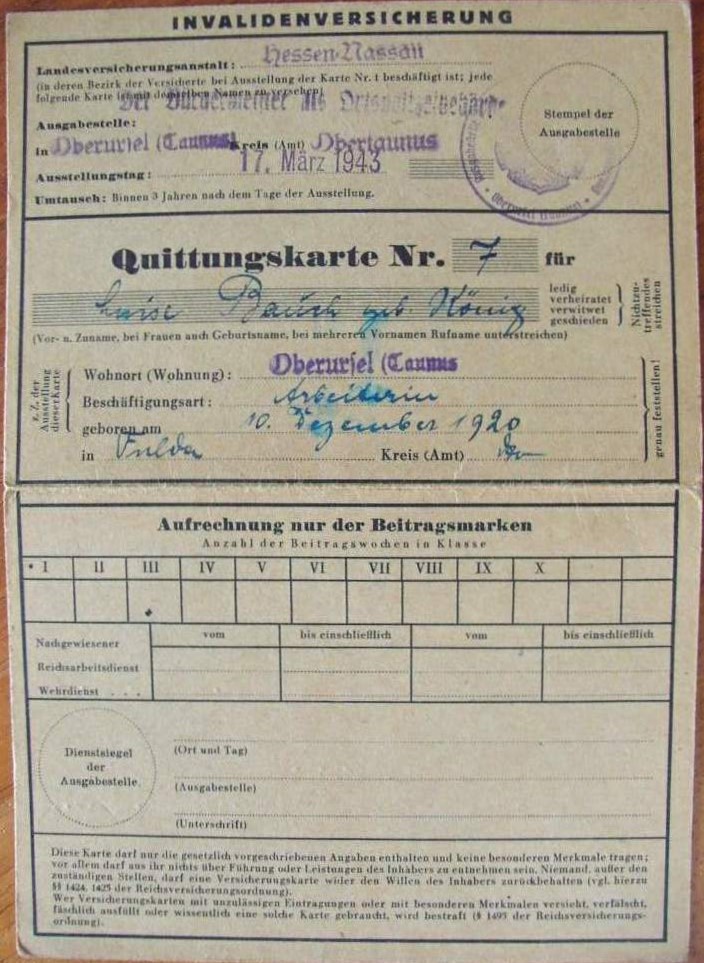 INVALIDENVERSICHERUNG
Landesversicherungsanstalt: Hessen-Nassau
(in deren Bezirk der Versicherte bei Ausstellung der Karte Nr. 1 beschäftigt ist; jede
folgende Karte ist mit demselben Namen zu versehen)
Der Bürgermeister als Ortspolizeibehörde
Ausgabestelle:
in Oberursel (Taunus) Kreis (Amt) Obertaunus
Ausstellungstag: 17. März 1943
Umtausch: Binnen 3 Jahren nach dem Tage der Ausstellung.
Stempel der
Ausgabestelle
Quittungskarte Nr. 7 für
Luise Bausch geb. König
ledig
verheiratet
verwitwet
geschieden
Nichtzu-
treffendes
streichen
(Vor- u. Zuname, bei Frauen auch Geburtsname, bei mehreren Vornamen Rufname unterstreichen)
z. Z. der
Ausstellung
dieser Karte
Wohnort (Wohnung): Oberursel (Taunus
Beschäftigungsart: Arbeiterin
geboren am 10. Dezember 1920
in Fulda Kreis (Amt)
genau feststellen!
Aufrechnung nur der Beitragsmarken
Anzahl der Beitragswochen in Klasse
I II III IV V VI VII VIII IX X
vom bis einschließlich vom bis einschließlich
Nachgewiesener
Reichsarbeitsdienst
Wehrdienst . . .
Dienstsiegel
der
Ausgabestelle.
(Ort und Tag)
(Ausgabestelle)
(Unterschrift)
Diese Karte darf nur die gesetzlich vorgeschriebenen Angaben enthalten und keine besonderen Merkmale tragen;
vor allem darf aus ihr nichts über Führung oder Leistungen des Inhabers zu entnehmen sein. Niemand, außer den
zuständigen Stellen, darf eine Versicherungskarte wider den Willen des Inhabers zurückbehalten (vgl. hierzu
§§ 1424, 1425 der Reichsversicherungsordnung).
Wer Versicherungskarten mit unzulässigen Eintragungen oder mit besonderen Merkmalen versieht, verfälscht,
fälschlich ausfüllt oder wissentlich eine solche Karte gebraucht, wird bestraft (§ 1495 der Reichsversicherungs-
ordnung).